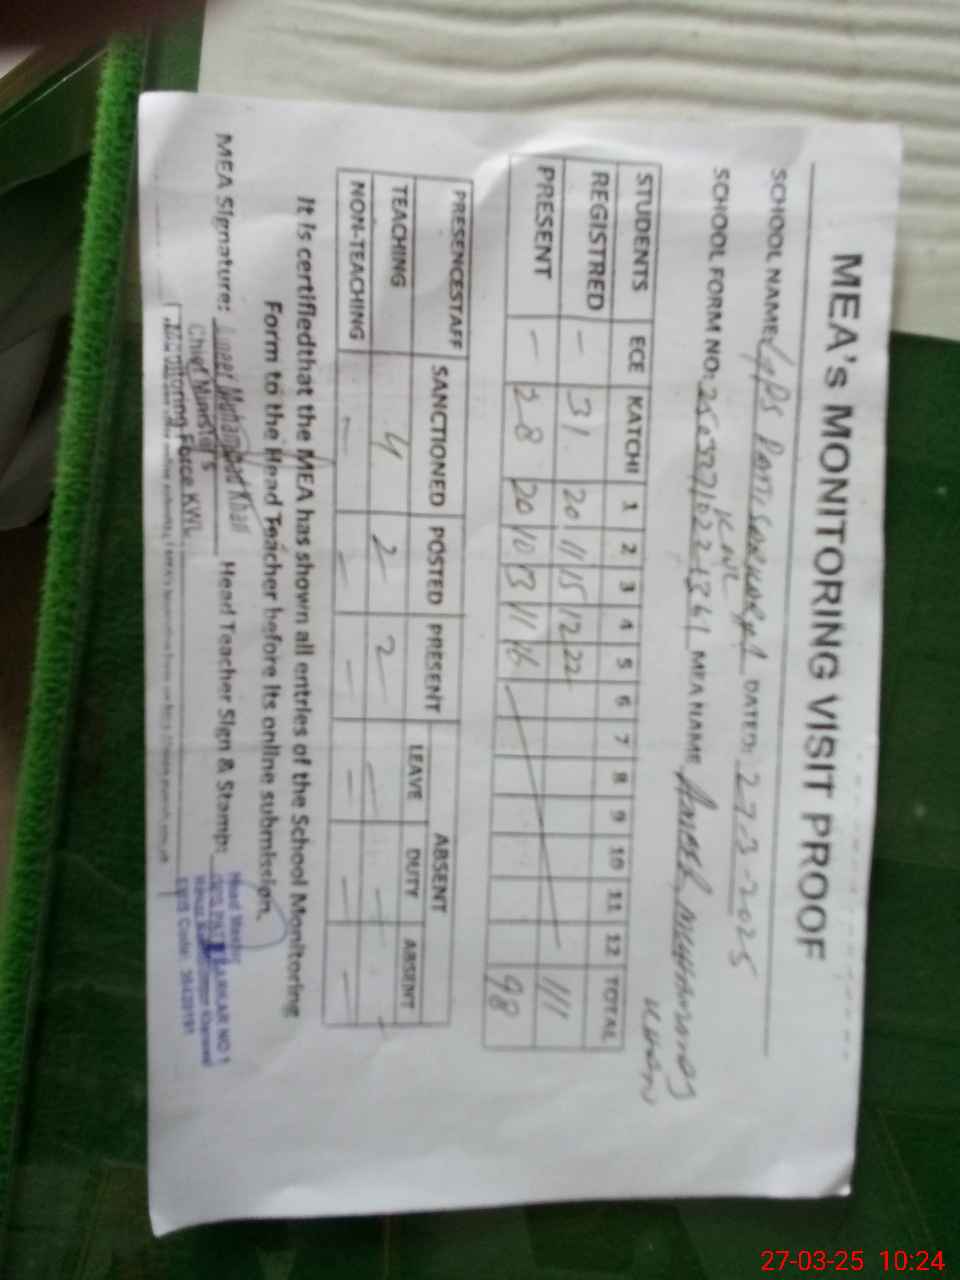 MEA's MONITORING VISIT PROOF
SCHOOL NAME: DATED: 27-3-2025
KWL
SCHOOL FORM NO: MEA NAME Ameer Muhammad
Khan
STUDENTS ECE KATCHI 1 2 3 4 5 6 7 8 9 10 11 12 TOTAL
REGISTRED - 31 20 11 15 12 22 111
PRESENT - 28 20 10 13 11 16 98
PRESENCESTAFF SANCTIONED POSTED PRESENT ABSENT
LEAVE DUTY ABSENT
TEACHING 4 2 2 - - -
NON-TEACHING - - - - - -
It is certifiedthat the MEA has shown all entries of the School Monitoring
Form to the Head Teacher before its online submission.
MEA Signature: Ameer Muhammad Khan Head Teacher Sign & Stamp: Head Master
Chief Minister's
Monitoring Force KWL
27-03-25 10:24